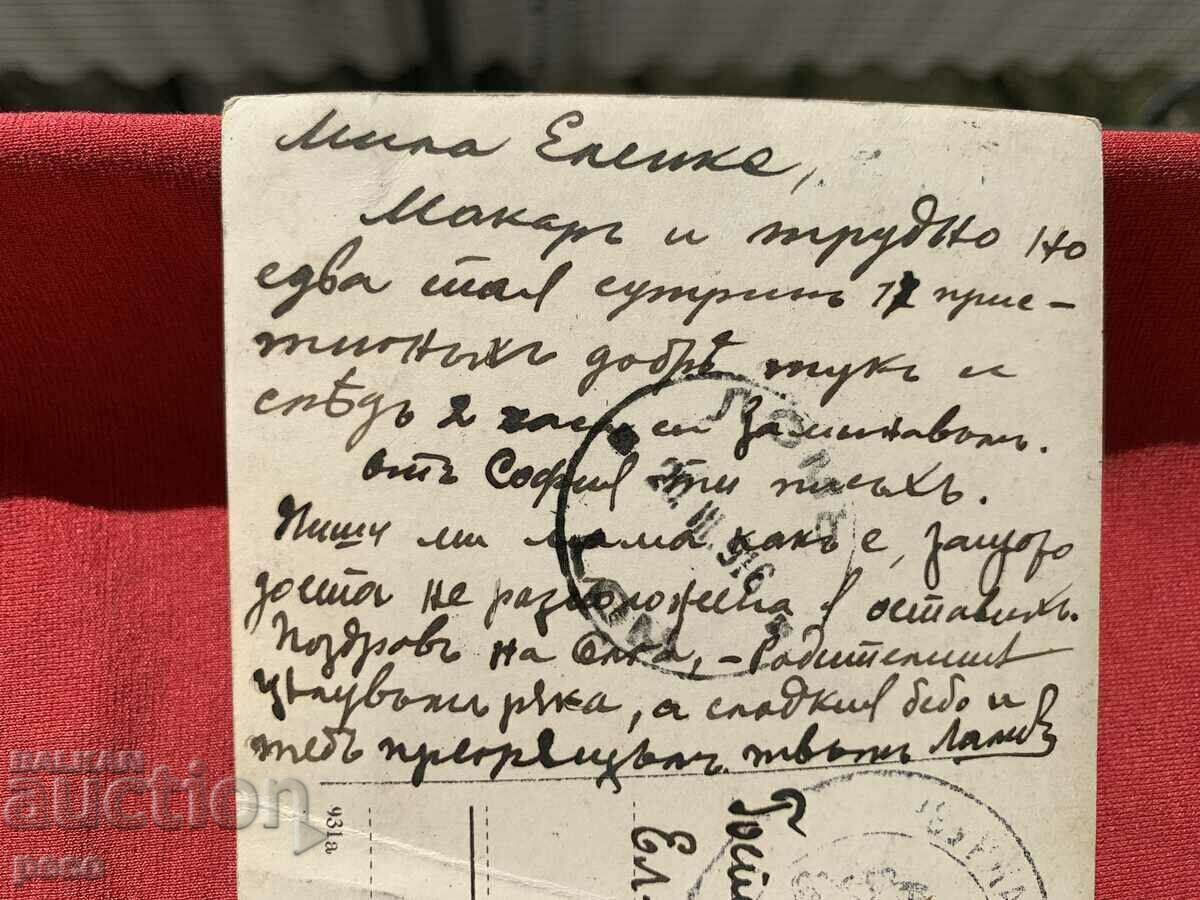 Мила Еленке,
Макаръ и трудно но
едва тая сутринь 17 прис-
тигныхъ добрѣ тукъ и
слѣдъ 2 часа си заминавамъ.
отъ София ти писахъ.
Пиши ми мама какъ е, защото
доста не разположена я оставихъ.
Поздравъ на Олга, – Родителите
цѣлувамъ рѫка, а сладкия бебо и
тебъ прегрѫщамъ. твоятъ
931а
Госп
Ел
BALKAN
auction
poso